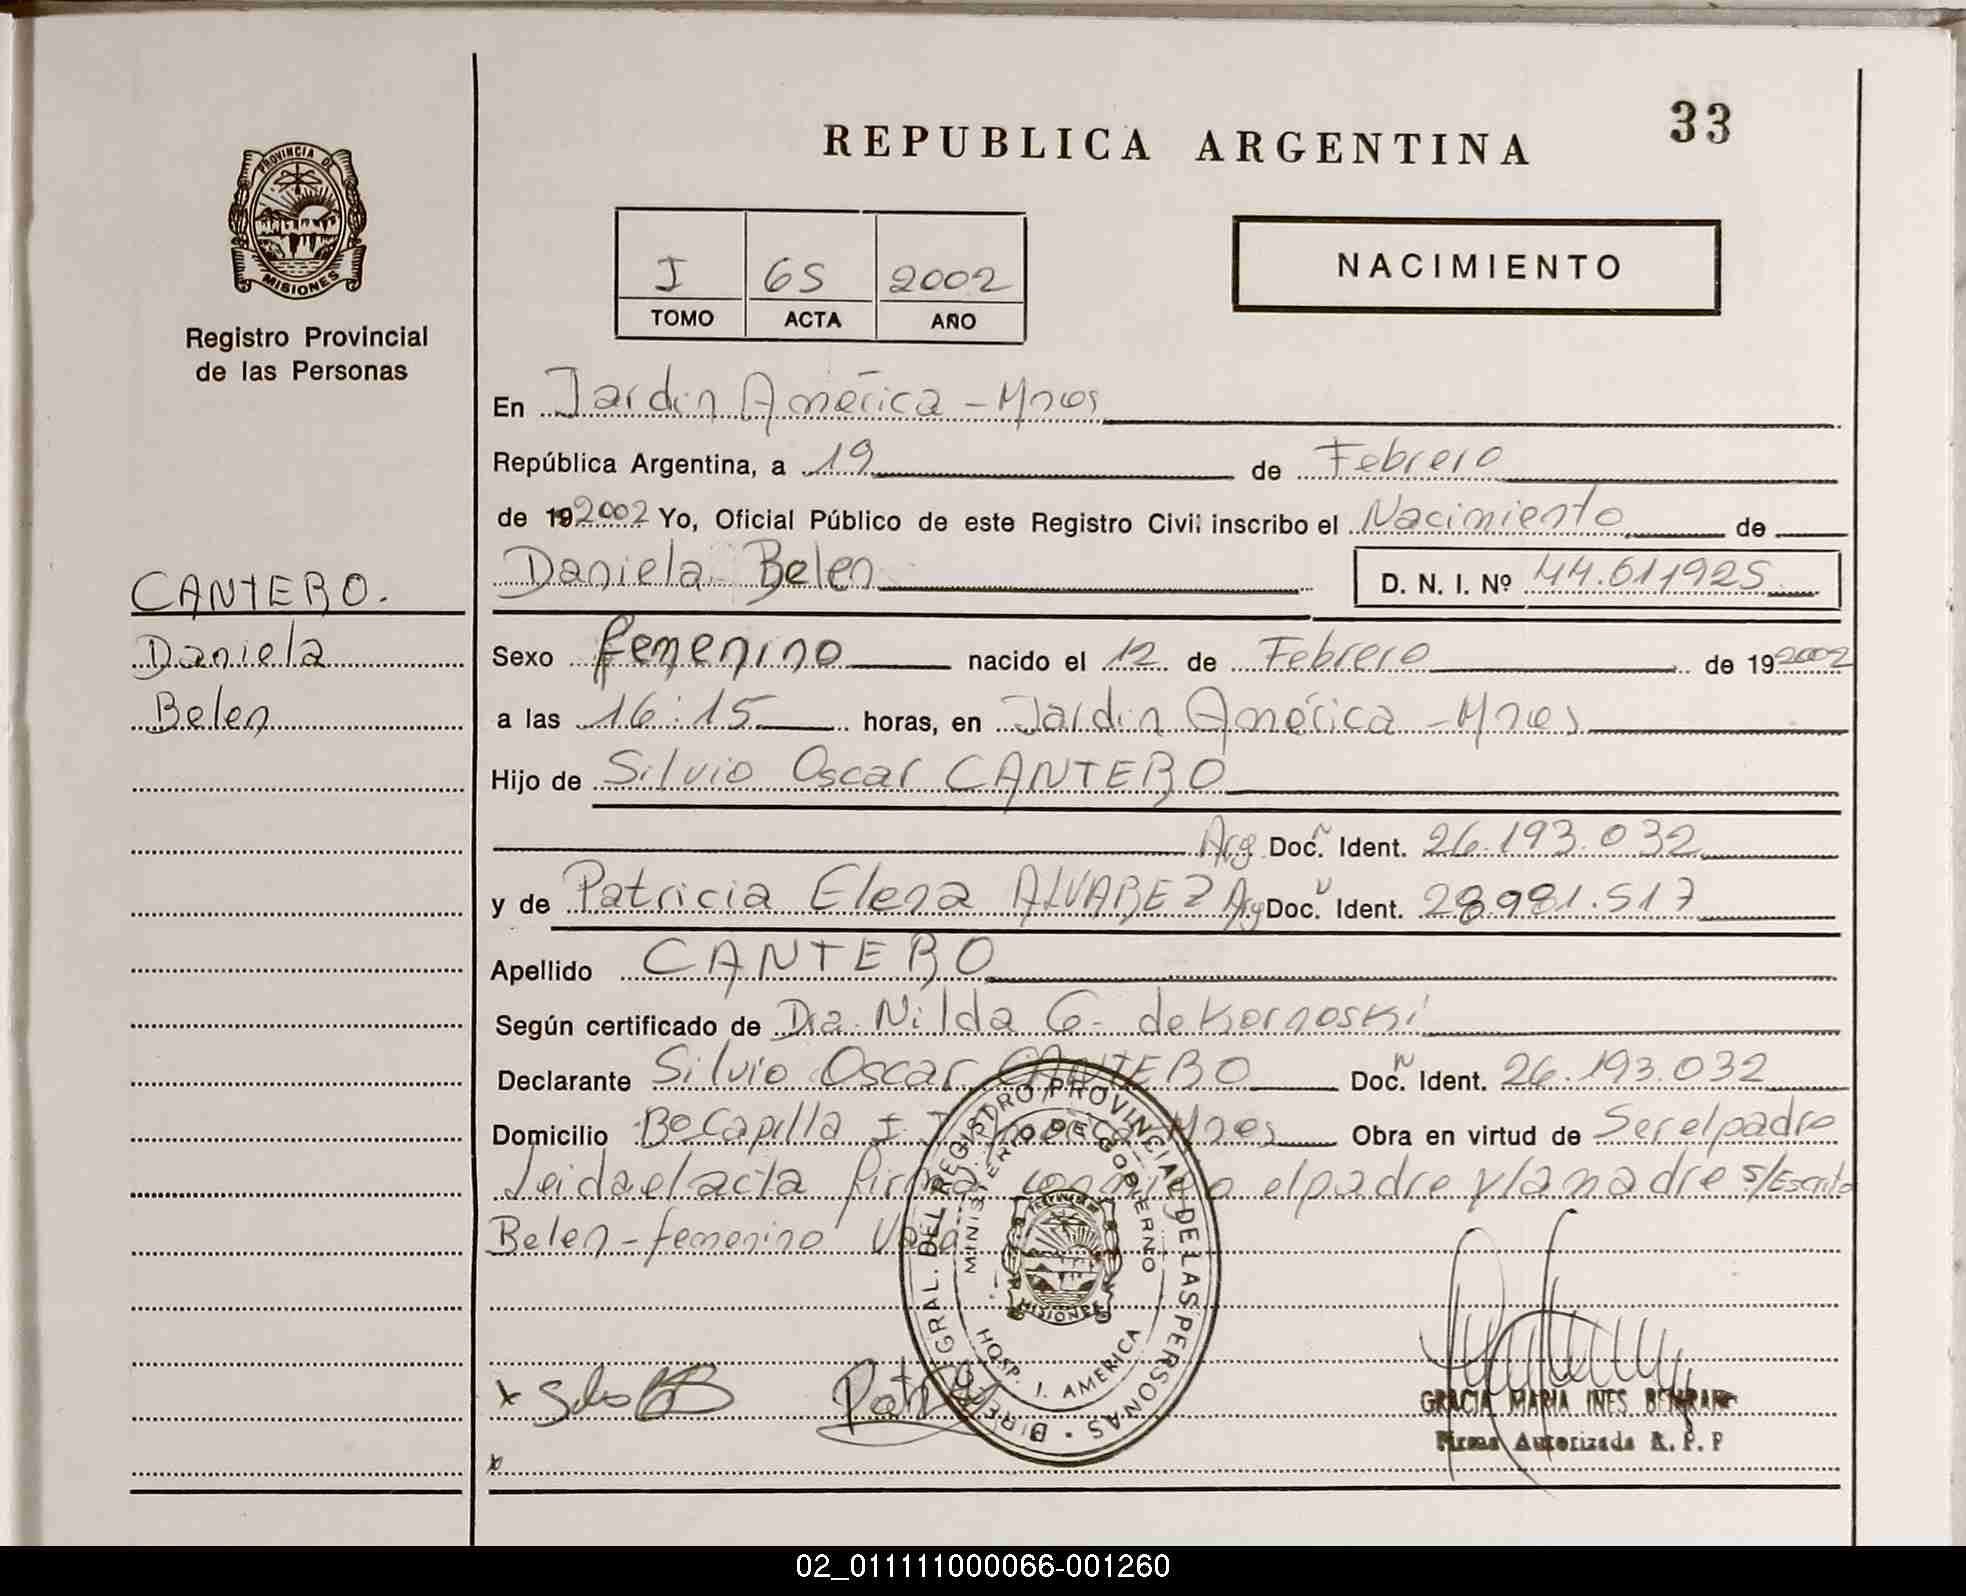 33
REPUBLICA ARGENTINA
PROVINCIA DE
MISIONES
Registro Provincial
de las Personas
I 65 2002
TOMO ACTA AÑO
NACIMIENTO
En Jardin América - Mnes
República Argentina, a 19 de Febrero
de 192002 Yo, Oficial Público de este Registro Civil inscribo el Nacimiento de
Daniela Belen D. N. I. Nº 44.611925
CANTERO.
Daniela
Belen
Sexo femenino nacido el 12 de Febrero de 192002
a las 16:15 horas, en Jardin América - Mnes
Hijo de Silvio Oscar CANTERO
Arg Doc. Ident. 26.193.032
y de Patricia Elena ALVAREZ Arg Doc. Ident. 28.981.517
Apellido CANTERO
Según certificado de Dra. Nilda G. de Kornoski
Declarante Silvio Oscar CANTERO Doc. Ident. 26.193.032
Domicilio Bo Capilla J. América Mnes Obra en virtud de Ser el padre
Leida el acta firma conmigo el padre y la madre s/Escrito
Belen - femenino Vale
DIREC. GRAL. DEL REGISTRO PROVINCIAL DE LAS PERSONAS
MINISTERIO DE GOBIERNO
MISIONES
HOSP. J. AMERICA
GRACIA MARIA INES
Firma Autorizada R. P. P
02_011111000066-001260